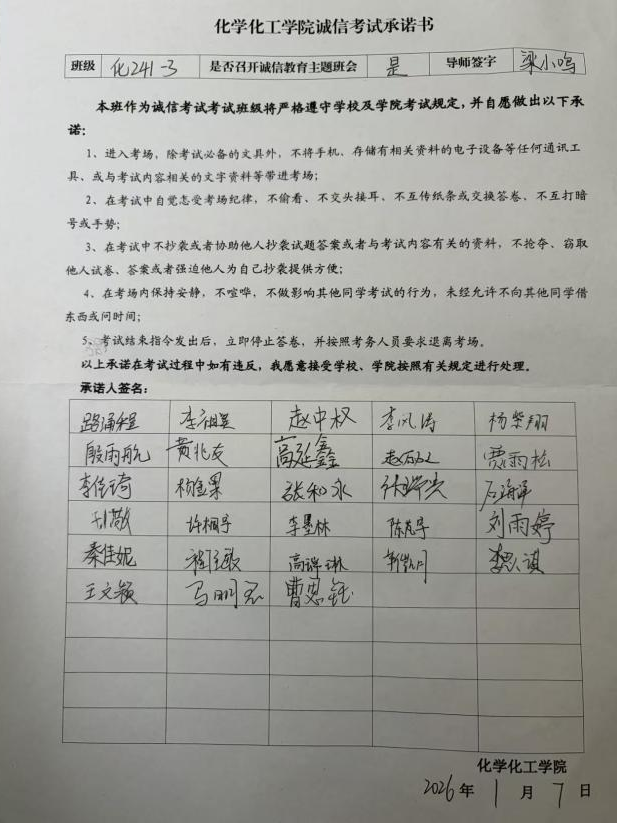 化学化工学院诚信考试承诺书
班级 化241-3 是否召开诚信教育主题班会 是 导师签字 梁小鸣
本班作为诚信考试考试班级将严格遵守学校及学院考试规定，并自愿做出以下承
诺：
1、进入考场，除考试必备的文具外，不将手机、存储有相关资料的电子设备等任何通讯工
具、或与考试内容相关的文字资料等带进考场；
2、在考试中自觉忠受考场纪律，不偷看、不交头接耳，不互传纸条或交换答卷、不互打暗
号或手势；
3、在考试中不抄袭或者协助他人抄袭试题答案或者与考试内容有关的资料，不抢夺、窃取
他人试卷、答案或者强迫他人为自己抄袭提供方便；
4、在考场内保持安静，不喧哗，不做影响其他同学考试的行为，未经允许不向其他同学借
东西或问时间；
5、考试结束指令发出后，立即停止答卷，并按照考务人员要求退离考场。
以上承诺在考试过程中如有违反，我愿意接受学校、学院按照有关规定进行处理。
承诺人签名：
路涌程 赵中权 李风涛
殷雨航 黄兆友 高延鑫 贾雨松
李佳琦 张和永 石海洋
许桐亭 李墨林 刘雨婷
秦佳妮 高瑞琳
王文颖 马明君 曹忠钰
化学化工学院
2026年 1月 7日